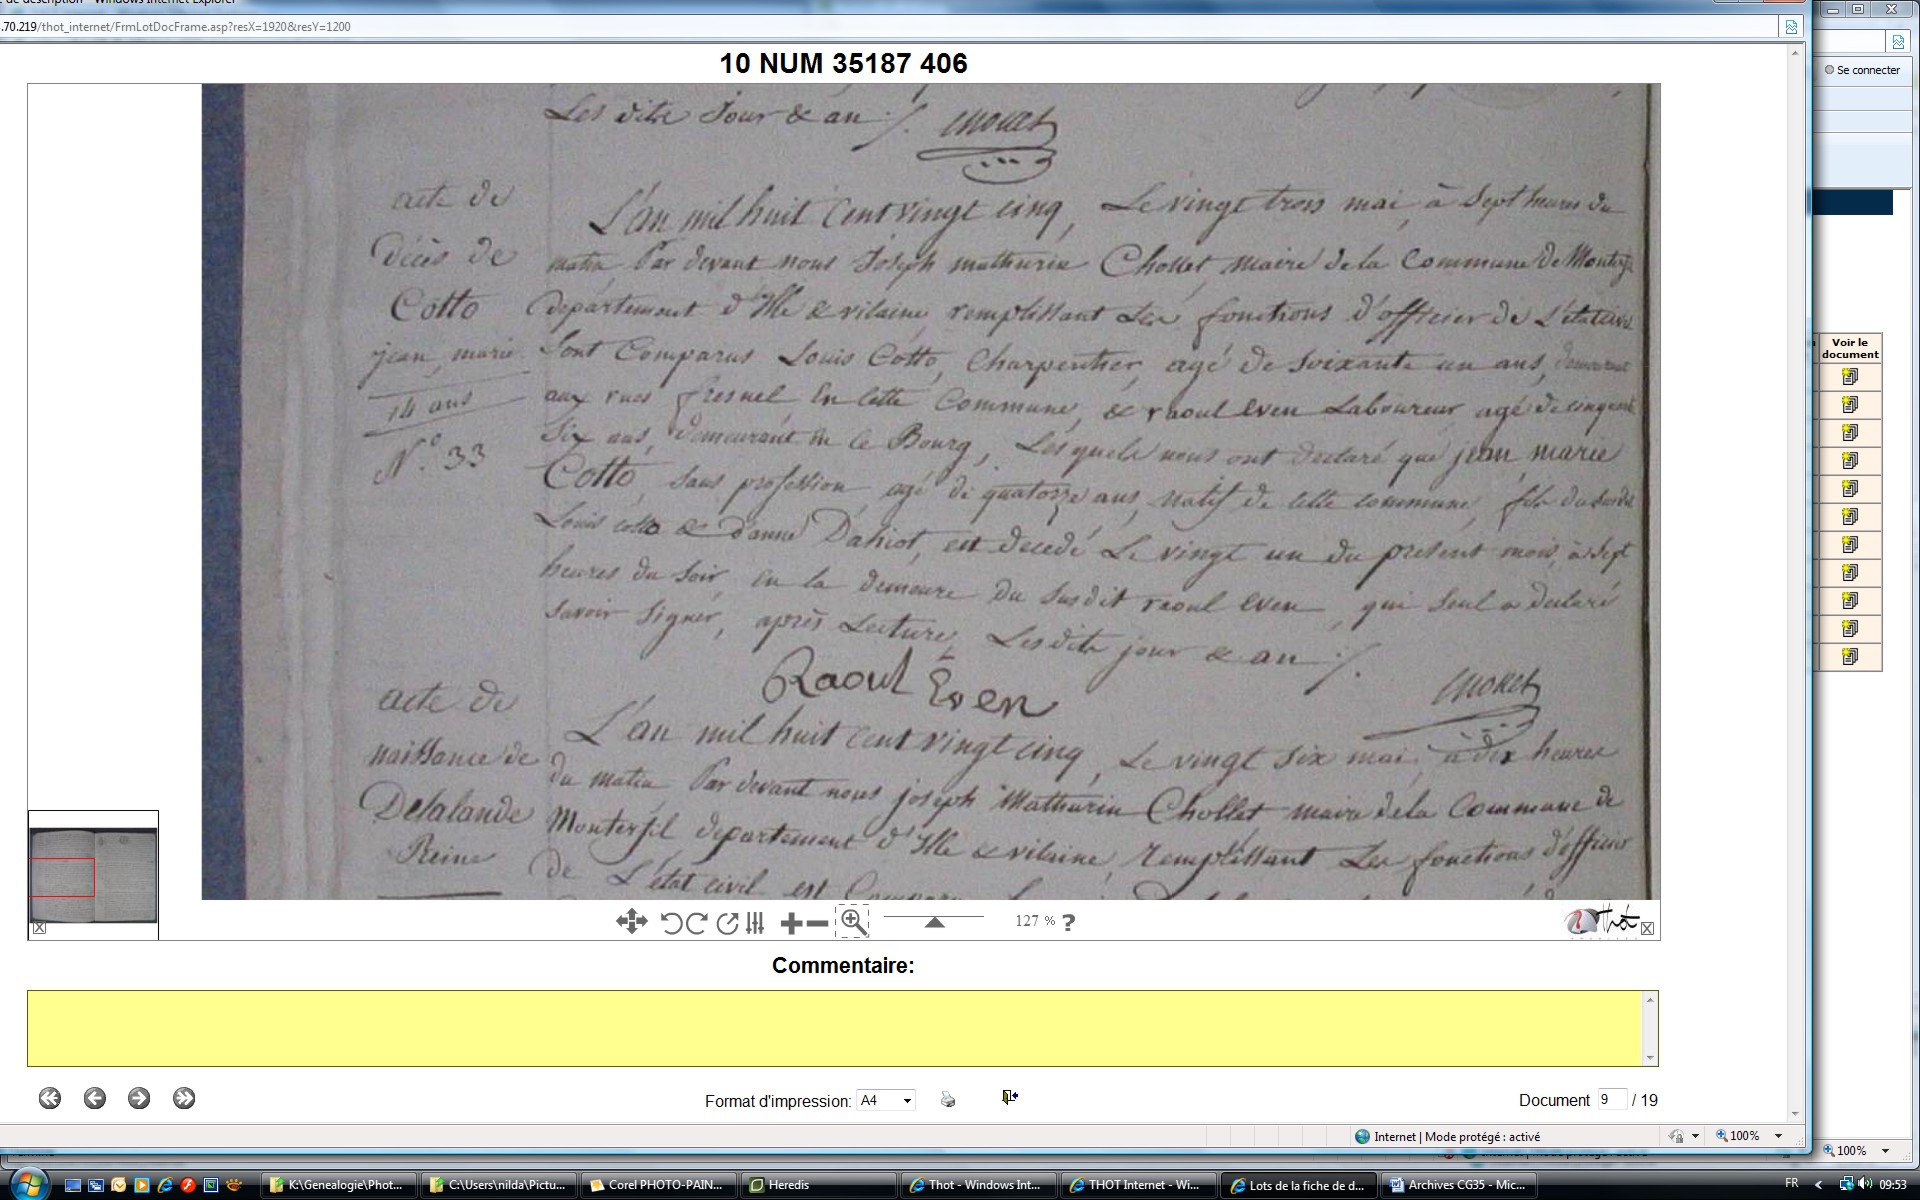 de description - Windows Internet Explorer
.70.219/thot_internet/FrmLotDocFrame.asp?resX=1920&resY=1200
Se connecter
10 NUM 35187 406
Les dits Jour & an ./. Chollet
acte de
décès de
Cotto
jean marie
14 ans
N.° 33
L'an mil huit Cent vingt cinq, Le vingt trois mai, à Sept heures du
matin Par devant nous Joseph mathurin Chollet maire de la Commune de Monterfil
département d'Ille & vilaine, remplissant Les fonctions d'officier de L'état civil
Sont Comparus Louis Cotto, Charpentier, agé de Soixante un ans, demeurant
aux rues fresnel En cette Commune, & raoul even Laboureur agé de cinquante
Six ans, demeurant en ce Bourg, Lesquels nous ont declaré que jean marie
Cotto, sans profession agé de quatorze ans, natif de cette commune, fils du susdit
Louis cotto & d'anne Dahiot, est decedé Le vingt un du present mois, à sept
heures du soir, en la demeure du susdit raoul even, qui seul a declaré
savoir signer, après Lecture, Les dits jour & an ./.
Raoul Even
Chollet
acte de
naissance de
Delalande
Reine
L'an mil huit cent vingt cinq, Le vingt six mai, à dix heures
du matin Par devant nous joseph Mathurin Chollet maire de la Commune de
Monterfil departement d'Ille & vilaine, remplissant Les fonctions d'officier
de L'état civil est Comparu
127 % ?
Thot
Voir le
document
Commentaire:
Format d'impression: A4
Document 9 / 19
Internet | Mode protégé : activé
100%
100%
K:\Genealogie\Phot...
C:\Users\nilda\Pictu...
Corel PHOTO-PAIN...
Heredis
Thot - Windows Int...
THOT Internet - Wi...
Lots de la fiche de d...
Archives CG35 - Mic...
FR
09:53